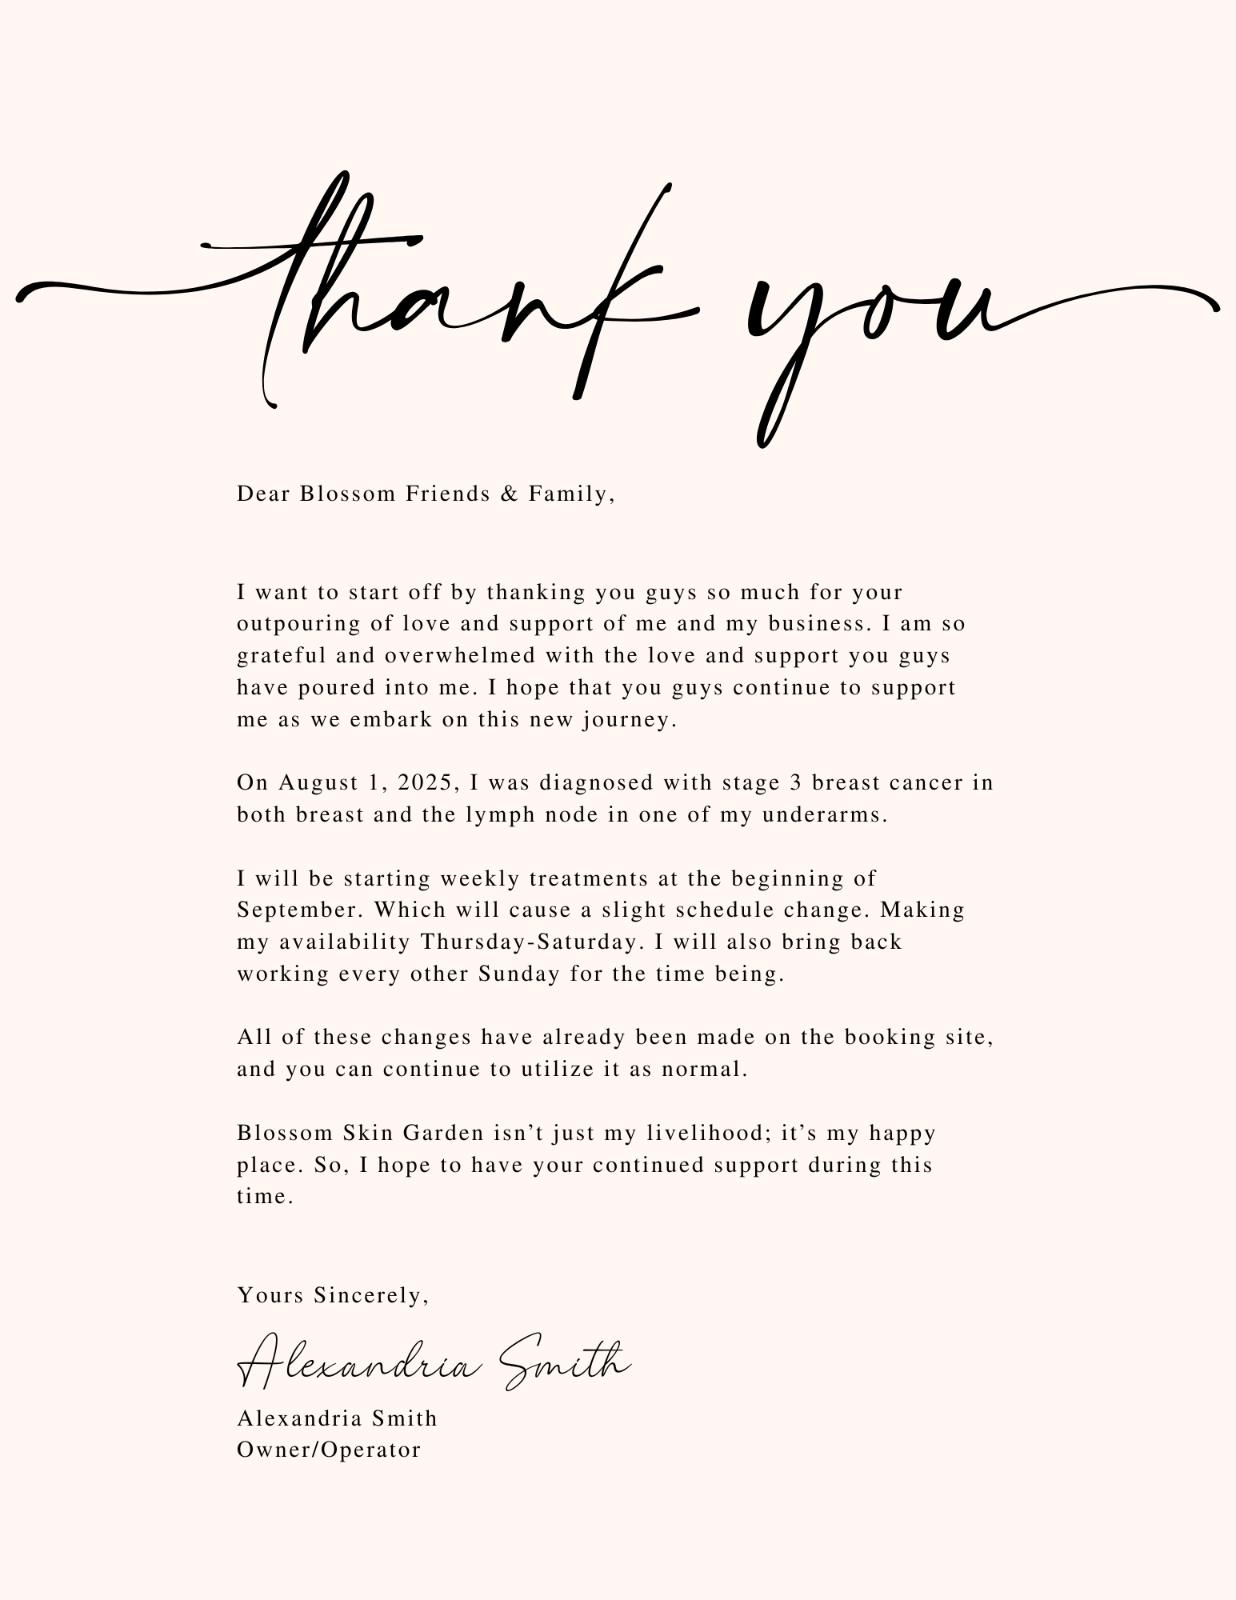 thank you
Dear Blossom Friends & Family,
I want to start off by thanking you guys so much for your
outpouring of love and support of me and my business. I am so
grateful and overwhelmed with the love and support you guys
have poured into me. I hope that you guys continue to support
me as we embark on this new journey.
On August 1, 2025, I was diagnosed with stage 3 breast cancer in
both breast and the lymph node in one of my underarms.
I will be starting weekly treatments at the beginning of
September. Which will cause a slight schedule change. Making
my availability Thursday-Saturday. I will also bring back
working every other Sunday for the time being.
All of these changes have already been made on the booking site,
and you can continue to utilize it as normal.
Blossom Skin Garden isn’t just my livelihood; it’s my happy
place. So, I hope to have your continued support during this
time.
Yours Sincerely,
Alexandria Smith
Alexandria Smith
Owner/Operator